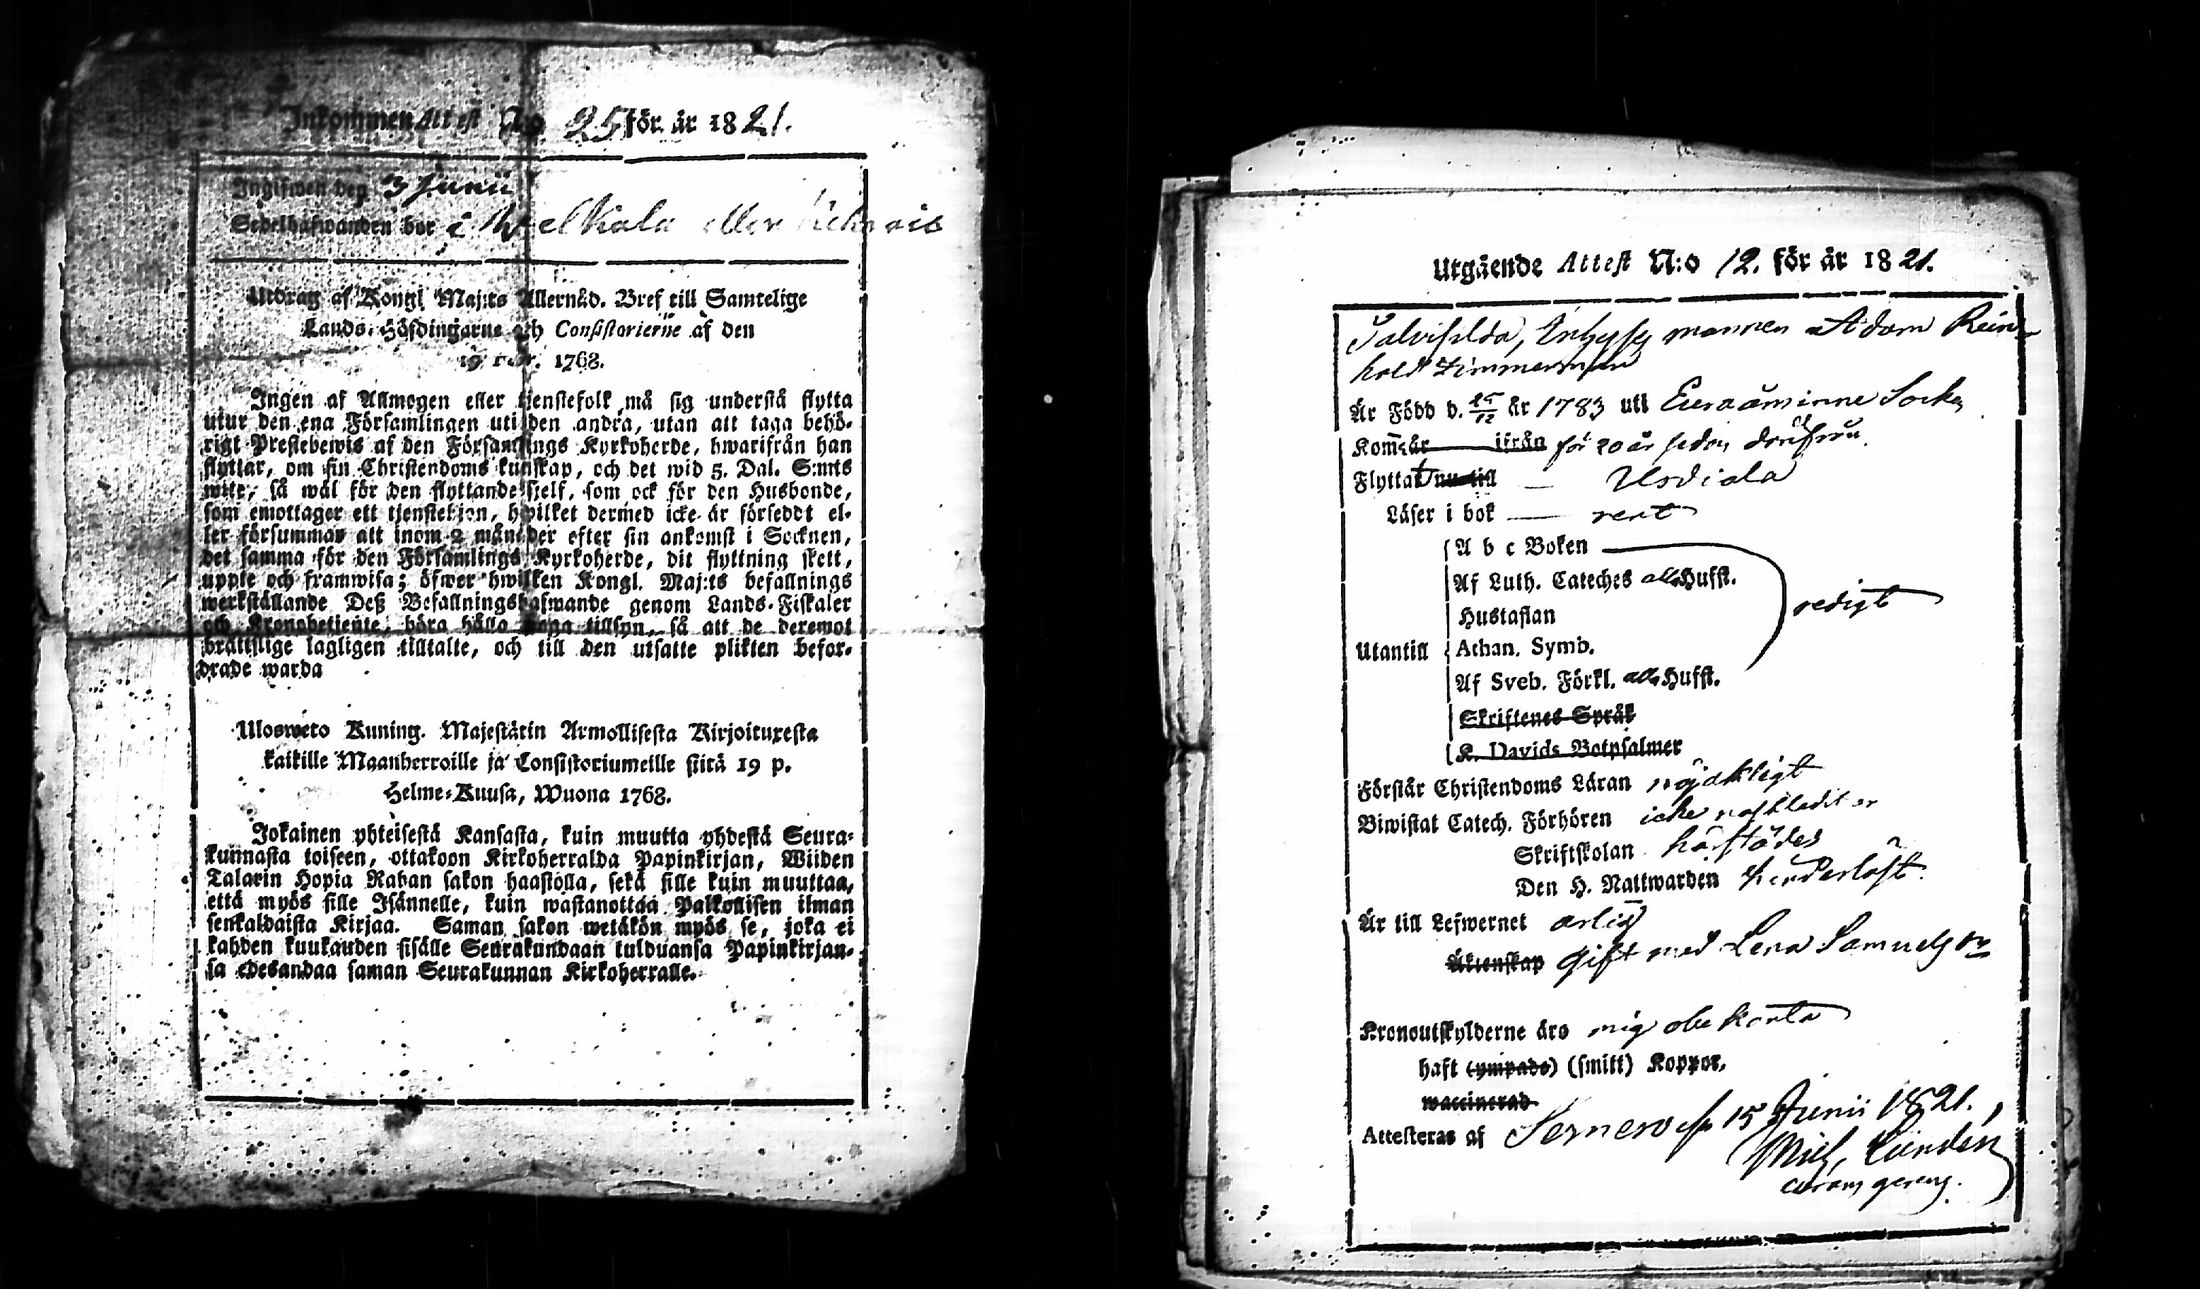 Inkommen Attest No 25 för år 1821.
Ingifwen den 3 Junii
Sedelhafwanden bor i eller
Utdrag af Kongl Maj:ts Allernåd. Bref till Samtelige
Lands-Höfdingarne och Consistorierne af den
19 Febr. 1768.
Ingen af Allmogen eller tjenstefolk må sig understå flytta
utur den ena Församlingen uti den andra, utan att taga behö-
rigt Prestebewis af den Församlings Kyrkoherde, hwarifrån han
flyttar, om sin Christendoms kunskap, och det wid 5. Dal. S:mts
wite, så wäl för den flyttande sjelf, som ock för den Husbonde,
som emottager ett tjenstehjon, hwilket dermed icke är förseddt el-
ler försummar att inom 2 månader efter sin ankomst i Socknen,
det samma för den Församlings Kyrkoherde, dit flyttning skett,
uppte och framwisa; öfwer hwilken Kongl. Maj:ts befallnings
werkställande Deß Befallningshafwande genom Lands-Fiskaler
och Kronobetjente, böra hålla noga tillsyn, så att de deremot
brättslige lagligen tilltalte, och till den utsatte plikten befor-
drade warda
Ulosweto Kuning. Majestätin Armollisesta Kirjoituxesta
kaikille Maanherroille ja Consistoriumeille siitä 19 p.
Helme-Kuusa, Wuona 1768.
Jokainen yhteisestä Kansasta, kuin muutta yhdestä Seura-
kunnasta toiseen, ottakoon Kirkoherralda Papinkirjan, Wiiden
Talarin Hopia Rahan sakon haastolla, sekä sille kuin muuttaa,
että myös sille Isännelle, kuin wastanottaa Palkollisen ilman
senkaldaista Kirjaa. Saman sakon wetäkön myös se, joka ei
kahden kuukauden sisälle Seurakundaan tulduansa Papinkirjan-
sa edesandaa saman Seurakunnan Kirkoherralle.
Utgående Attest N:o 12. för år 1821.
Inhyses mannen Adam Rein-
hold Zimmerman
Är Född d. 25/12 år 1783 uti Euraåminne Socken
Kom̄ år ifrån för 20 år sedan därifrån.
Flyttat nu till — Usdiala
Läser i bok — rent
A b c Boken
Af Luth. Cateches alla Hufst.
Hustaflan
redigt
Utantill Athan. Symb.
Af Sveb. Förkl. alla Hufst.
Skriftenes Språk
K. Davids Botpsalmer
Förstår Christendoms Läran nöjaktigt
Biwistat Catech. Förhören icke
Skriftskolan härstädes
Den H. Nattwarden
Är till Lefwernet ärlig
Äktenskap gift med Lena Samuels Dr
Kronoutskylderne äro mig obekanta
haft (ympade) (smitt) Koppor.
waccinerad
Attesteras af 15 Junii 1821.
Mich. Lindén